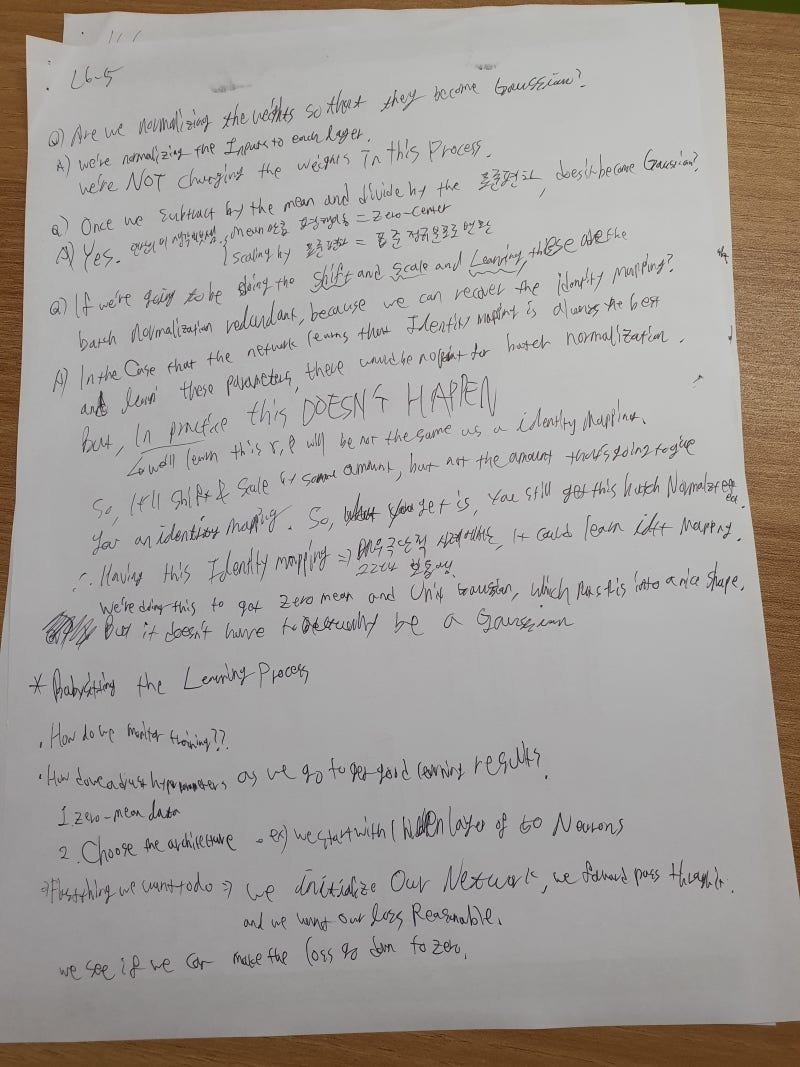 L6-5
Q) Are we normalizing the weights so that they become Gaussian?
A) we're normalizing the Inputs to each layer.
we're NOT changing the weights in this Process.
Q) Once we subtract by the mean and divide by the 표준편차, doesn't become Gaussian?
A) Yes. mean 만큼 평행이동 = Zero-center
Scaling by 표준편차 = 표준 정규분포로 변환
Q) If we're going to be doing the shift and scale and Learning, these are the
batch normalization redundant, because we can recover the identity mapping?
A) In the Case that the network learns that Identity mapping is always the best
and learn these parameters, there would be no point for batch normalization.
But, In practice this DOESN'T HAPPEN
↳ we'll learn this r, β will be not the same as a identity mapping.
So, It'll shift & Scale by some amount, but not the amount that's going to give
you an identity mapping. So, what you get is, you still get this batch Normalize
∴ Having this Identity mapping ⇒ 매우 극단적 사례에서는, It could learn idtt mapping.
we're doing this to got zero mean and Unit Gaussian, which puts this into a nice shape.
But it doesn't have to actually be a Gaussian
* Babysitting the Learning Process
. How do we monitor training??
. How do we adjust hyperparameters as we go to get good learning results.
1. zero-mean data
2. Choose the architecture . ex) we start with 1 hidden layer of 50 Neurons
⇒ First thing we want to do ⇒ we initialize Our Network, we forward pass through it.
and we want our loss Reasonable.
we see if we can make the loss go down to zero.